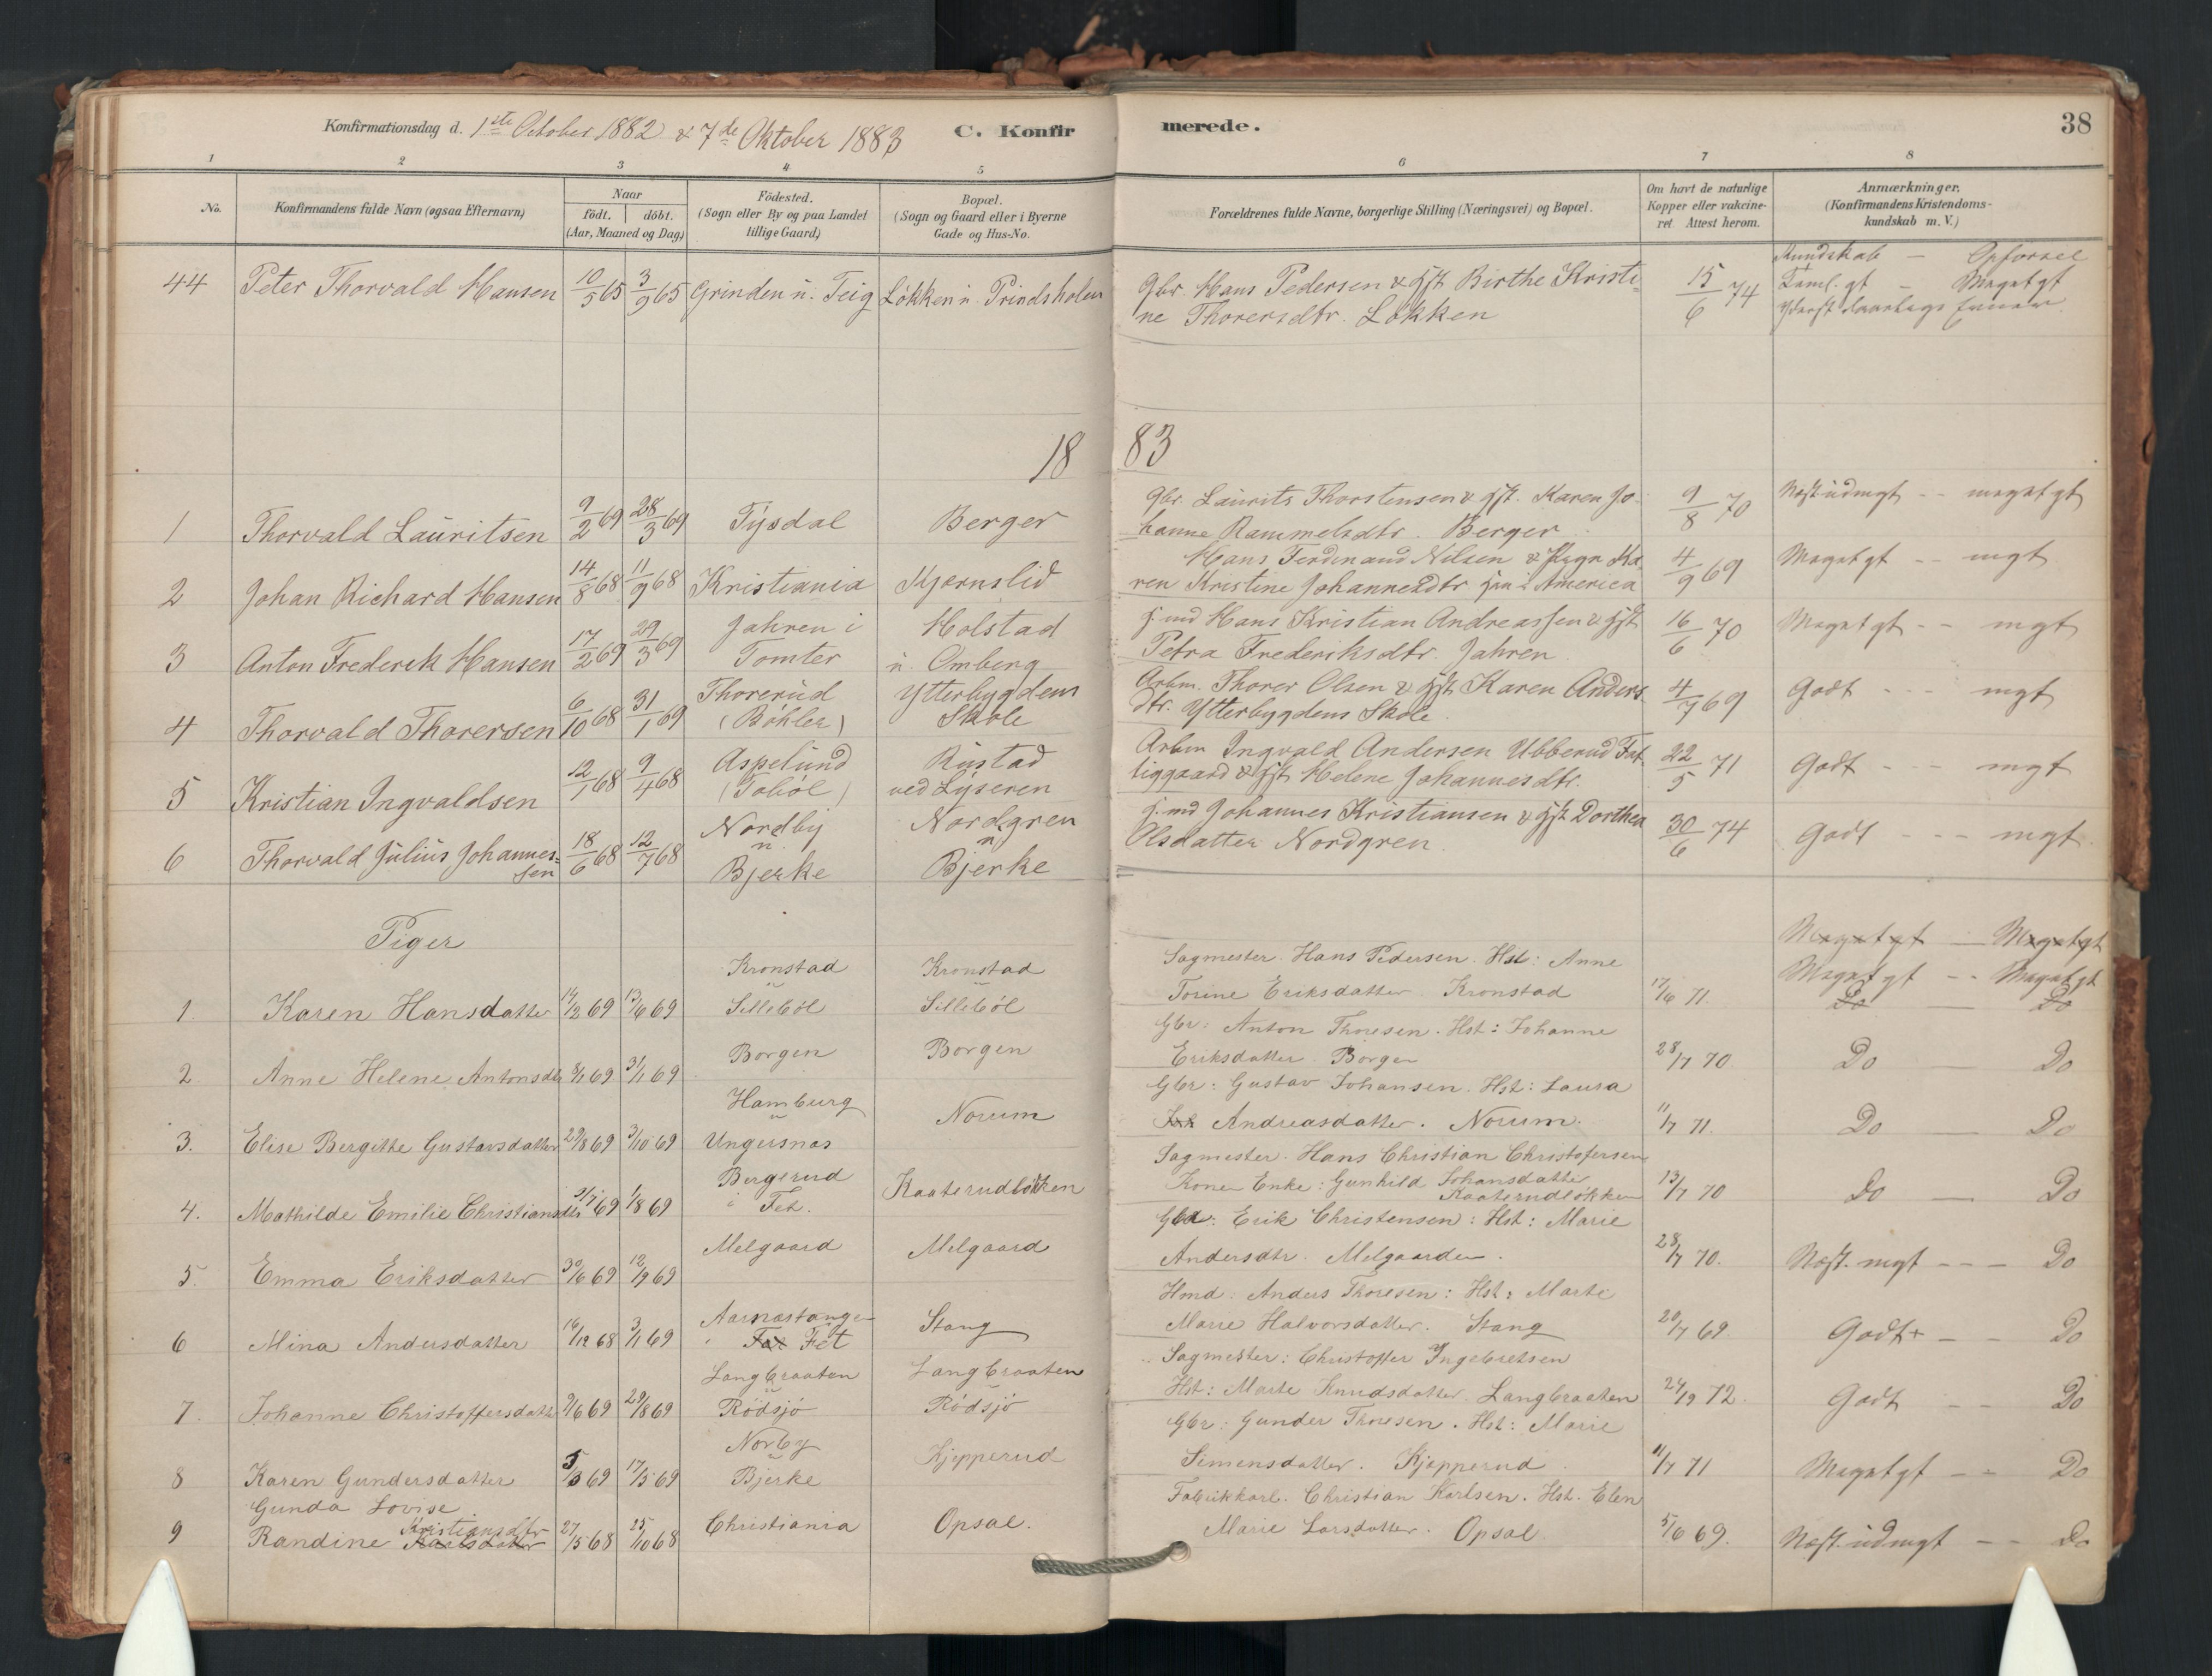 Konfirmationsdag d. 1ste October 1882 & 7de Oktober 1883 C. Konfirmerede. 38
1 2 3 4 5 6 7 8
No.
Konfirmandens fulde Navn (ogsaa Efternavn)
Naar
födt. | döbt.
(Aar, Maaned og Dag)
Födested.
(Sogn eller By og paa Landet
tillige Gaard)
Bopæl.
(Sogn og Gaard eller i Byerne
Gade og Hus-No.
Forældrenes fulde Navne, borgerlige Stilling (Næringsvei) og Bopæl.
Om havt de naturlige
Kopper eller vakcine-
ret Attest herom.
Anmærkninger.
(Konfirmandens Kristendoms-
kundskab m. V.)
Kundskab — Opförsel
44 Peter Thorvald Hansen 10/5 65 3/9 65 Grinden u. Teig Lökken u. Prindsholen Gbr. Hans Pedersen & Hst Birthe Kristi- 15/6 74 Taml. gt — Megetgt
ne Thorersdtr. Lökken
1883
1 Thorvald Lauritsen 9/2 69 28/3 69 Tysdal Berger Gbr. Laurits Thorstensen & Hst. Karen Jo- 9/8 70 Næst udmgt -- megetgt
hanne Rammelsdtr. Berger
2 Johan Richard Hansen 14/8 68 11/9 68 Kristiania Kjernslid Hans Ferdinand Nilsen & Pige Ka- 4/9 69 Megetgt -- mgt
ren Kristine Johannesdtr i America
3 Anton Frederik Hansen 17/2 69 29/3 69 Jahren i Tomter Holstad u. Omberg Hans Kristian Andreassen & Hst 16/6 70 Megetgt -- mgt
Petra Frederiksdtr. Jahren
4 Thorvald Thorersen 6/10 68 31/1 69 Thorerud (Böhler) Ytterbygdens Skole Arbm. Thorer Olsen & Hst Karen Anders- 4/7 69 Godt --- mgt
dtr. Ytterbygdens Skole
5 Kristian Ingvaldsen 12/1 68 9/4 68 Aspelund (Toböl) Rustad ved Lyseren Arbm Ingvald Andersen Ubberud Fat- 22/5 71 Godt --- mgt
tiggaard & Hst Helene Johannesdtr.
6 Thorvald Julius Johannes-
sen 18/6 68 12/7 68 Nordby u. Bjerke Nordgren u. Bjerke Johannes Kristiansen & Hst Dorthea 30/6 74 Godt --- mgt
Olsdatter Nordgren
Piger
Megetgt — Megetgt
Megetgt -- Megetgt
1. Karen Hansdatter 14/2 69 13/6 69 Kronstad Silleböl Kronstad Silleböl Sagmester. Hans Pedersen. Hst: Anne
Torine Eriksdatter Kronstad 17/6 71. Do — Do
2 Anne Helene Antonsdtr 8/1 69 31/1 69 Borgen Borgen Gbr: Anton Thoresen. Hst: Johanne
Eriksdatter. Borgen 28/7 70. Do — Do
3. Elise Bergitte Gustavsdatter 29/8 69 3/10 69 Hamburg Ungersnas Norum Gbr: Gustav Johansen. Hst: Laura
Andreasdatter. Norum. 11/7 71. Do — Do
4. Mathilde Emilie Christiansdtr 3/7 69 1/8 69 Bergerud i Fet. Kaaterudlökken Sagmester. Hans Christian Christofersen
Kone Enke: Gunhild Johansdatter
Kaaterudlökken 13/7 70 Do — Do
5. Emma Eriksdatter 30/6 69 12/9 69 Melgaard Melgaard Gbr: Erik Christensen: Hst: Marie
Andersdtr. Melgaarden. 28/7 70. Næst. mgt --- Do
6 Mina Andersdatter 16/12 68 3/1 69 Aarnæstangen i Fet Stang Hmd. Anders Thoresen: Hst: Marte
Marie Halvorsdatter. Stang 20/7 69. Godt+ -- Do
7. Johanne Christoffersdatter 9/6 69 29/8 69 Langbraaten Rödsjö Langbraaten Rödsjö Sagmester: Christoffer Ingebretsen
Hst: Marte Knudsdatter. Langbraaten 24/9 72. Godt -- Do
8 Karen Gundersdatter 5/3 69 17/5 69 Norby Bjerke Kjepperud Gbr: Gunder Thoresen. Hst: Marie
Simensdatter. Kjepperud. 11/7 71 Megetgt -- Do
9 Gunda Lovise
Randine Karlsdatter Kristiansdtr 27/5 68 25/10 68 Christiania Opsal. Fabrikkarl. Christian Karlsen. Hst. Elen
Marie Larsdatter. Opsal 5/6 69. Næst. udmgt -- Do